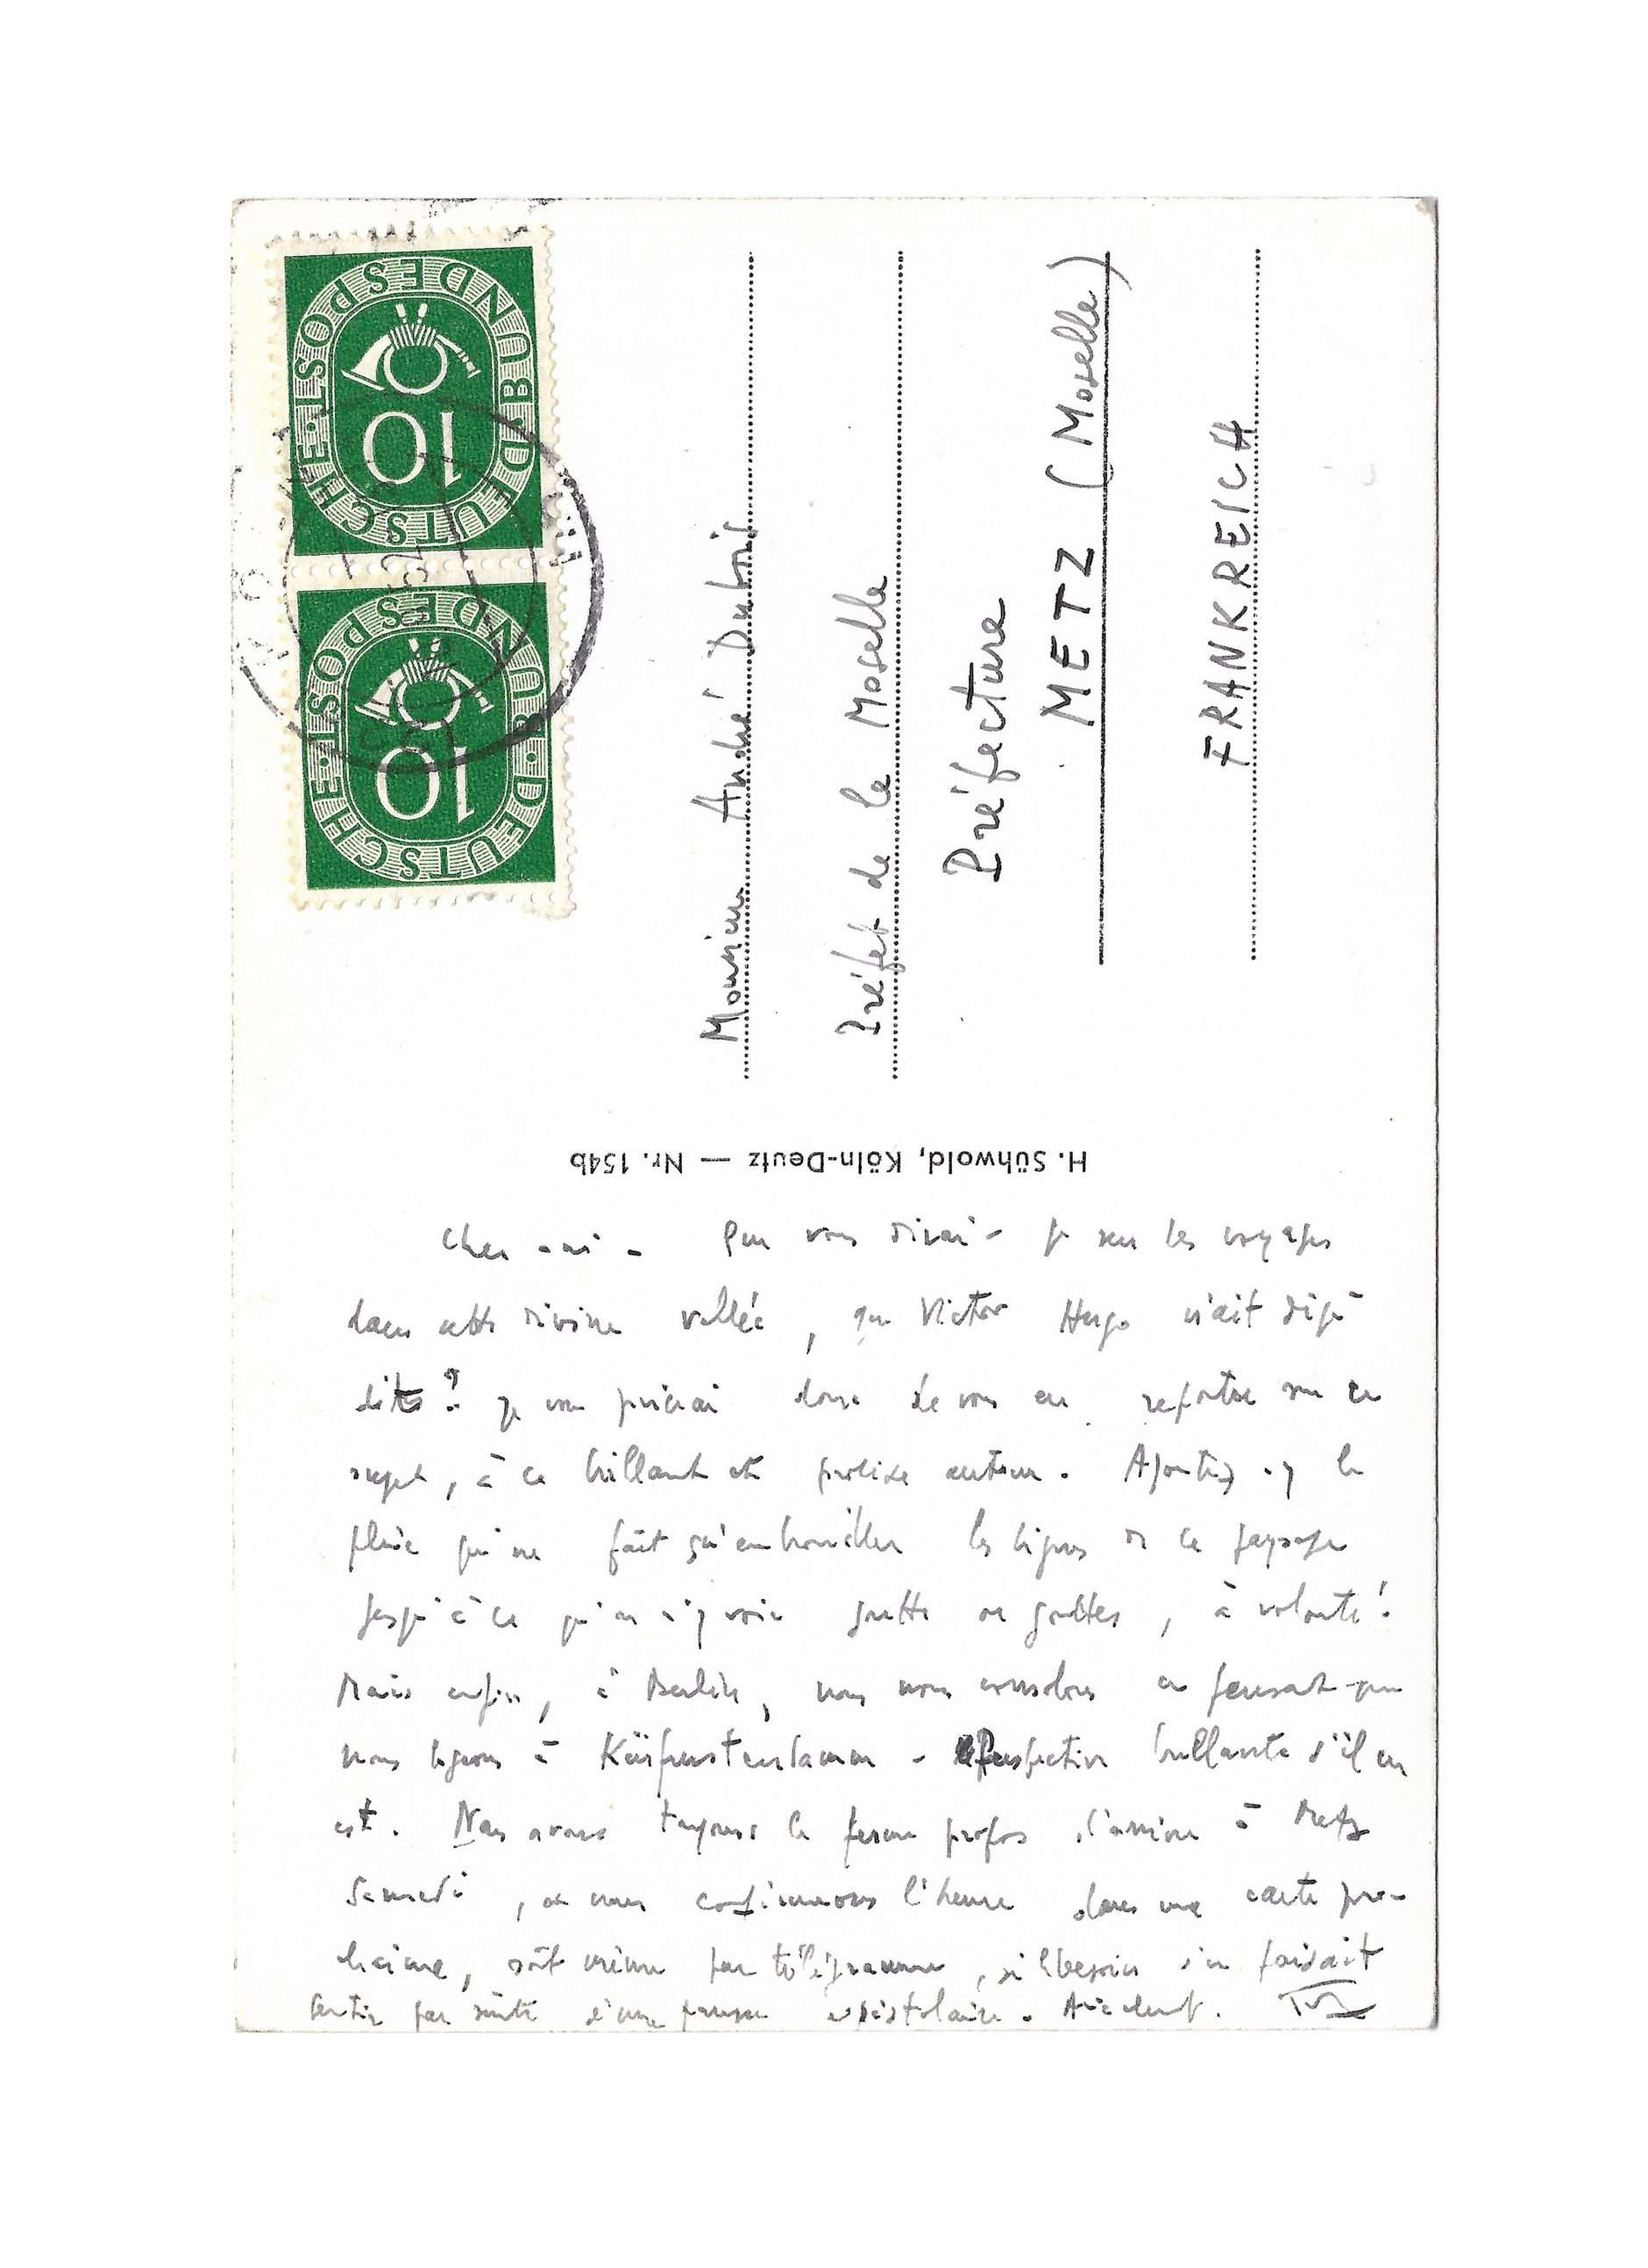 DEUTSCHE · BUNDESPOST ·
10
DEUTSCHE · BUNDESPOST ·
10
Monsieur André Dubois
Préfet de la Moselle
Préfecture
METZ (Moselle)
FRANKREICH
H. Sühwold, Köln-Deutz — Nr. 154b
Cher ami - Que vous dirai-je sur les voyages
dans cette divine vallée, que Victor Hugo n'ait déjà
dites? Je vous prierai donc de vous en reporter sur ce
sujet, à ce brillant et prolixe auteur. Ajoutez-y la
pluie qui ne fait qu'embrouiller les lignes de ce paysage
jusqu'à ce qu'on n'y voie goutte ou gouttes, à volonté!
Mais enfin, à Berlin, nous nous consolons en pensant que
nous logeons à Kürfurstendamm - perspective brillante s'il en
est. Nous avons toujours le ferme propos d'arriver à Metz
Samedi, et nous confirmerons l'heure dans une carte pro-
chaine, soit même par télégramme, si besoin s'en faisait
sentir par suite d'une paresse épistolaire.